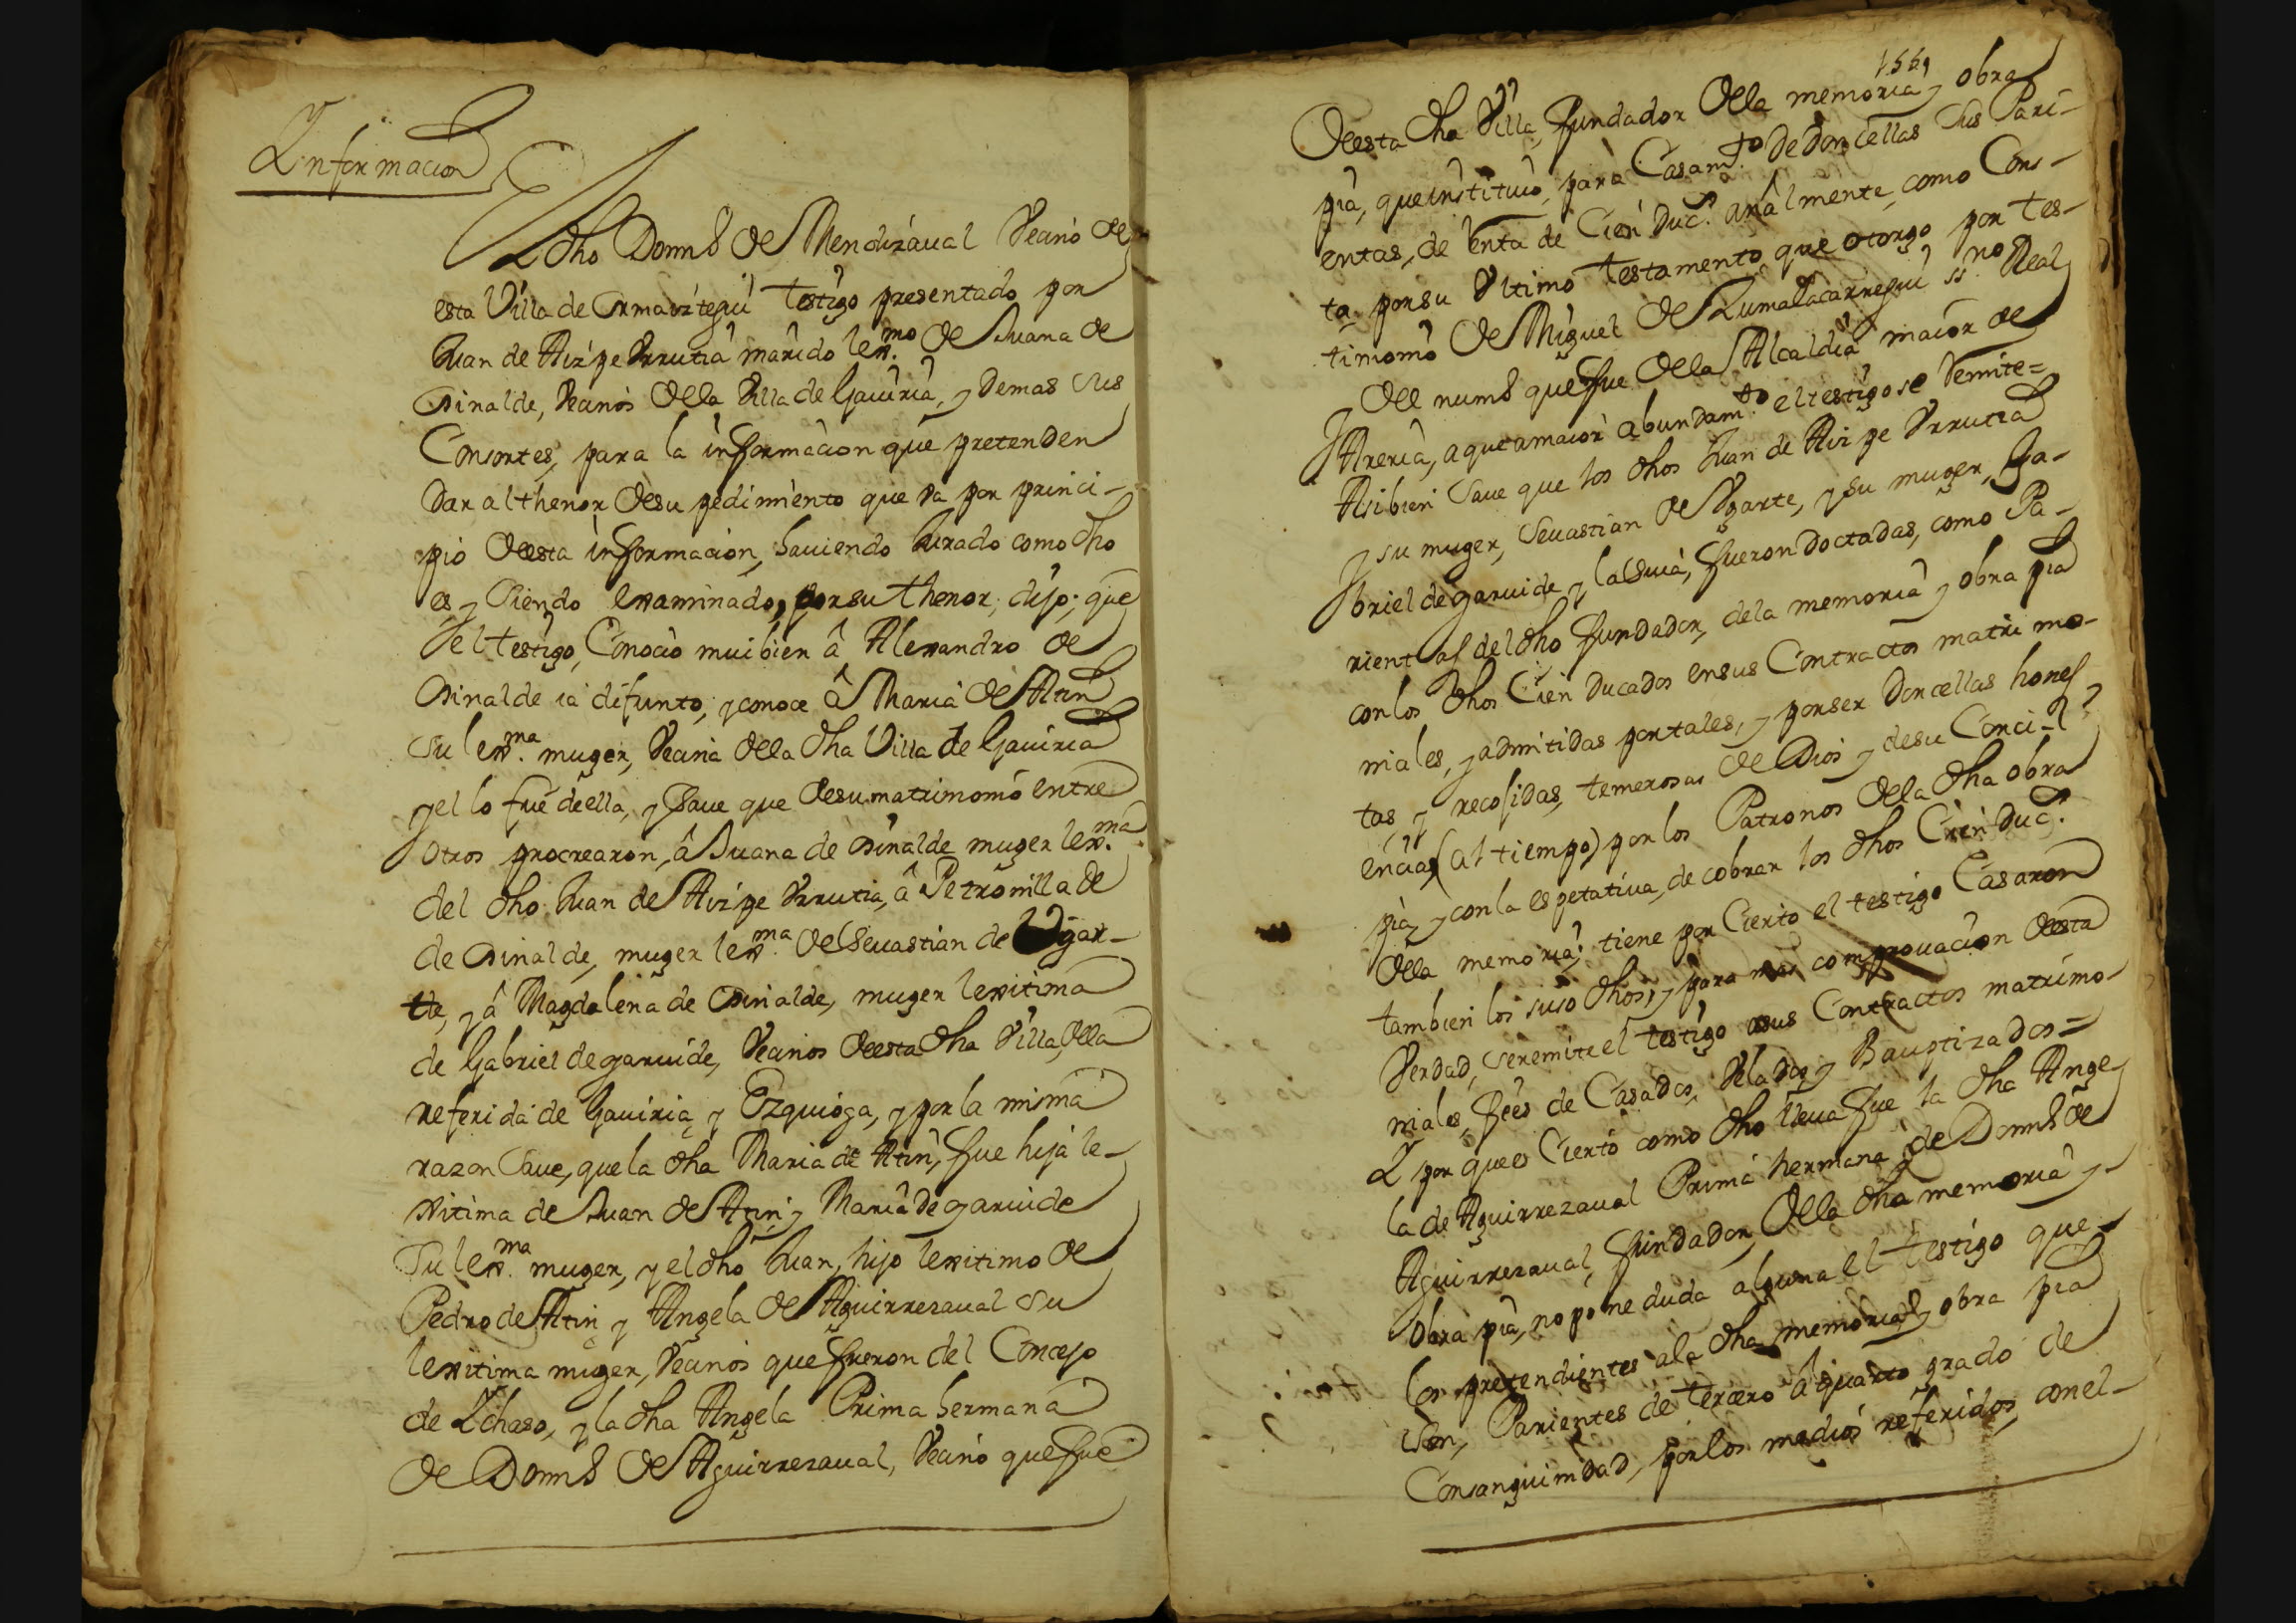 Informacion
El dho Domingo de Mendizaual Vecino de
esta Villa de Ormaiztegui testigo presentado por
Juan de Aizpe Vrrutia marido lex.mo de Juana de
Oinalde, Vecinos de la Villa de Gauiria, y demas sus
Consortes, para la informacion que pretenden
dar al thenor de su pedimiento que va por princi-
pio de esta informacion, hauiendo Jurado como dho
es, y siendo examinado, por su thenor, dijo; que
el testigo, Conocio mui bien â Alexandro de
Oinalde ia difunto, y conoce â Maria de Atin
su lex.ma muger, Vecina de la dha Villa de Gauiria
y el lo fue de ella, y saue que de su matrimonio entre
otros procrearon, â Juana de Oinalde muger lex.ma
del dho Juan de Aizpe Vrrutia, â Petronilla de
de Oinalde, muger lex.ma de Seuastian de Vgar-
te, y â Magdalena de Oinalde, muger lexitima
de Gabriel de garuide, Vecinos de esta dha Villa, de la
referida de Gauiria, y Ezquioga, y por la misma
razon saue, que la dha Maria de Atin, fue hija le-
xitima de Juan de Atin, y Maria de garuide
su lex.ma muger, y el dho Juan, hijo lexitimo de
Pedro de Atin y Angela de Aguirrezaual su
lexitima muger, Vecinos que fueron del Concejo
de Ichaso, y la dha Angela Prima hermana
de Domingo de Aguirrezaual, Vecino que fue
de esta dha Villa, fundador de la memoria y obra
pia, que instituio, para Casam.to de doncellas sus Pari-
entas, de renta de Cien Duc.s anàlmente, como Cons-
ta por su Vltimo testamento que otorgo por tes-
timonio de Miguel de Zumalacarregui ss.no Real
y del numero que fue de la Alcaldia maior de
Areria, a que a maior abundam.to el testigo se remite=
Asi bien saue que los dhos Juan de Aizpe Vrrutia
y su muger, Seuastian de Vgarte, y su muger, Ga-
briel de garuide y la suia, fueron doctadas, como Pa-
rientas del dho fundador, de la memoria y obra pia
con los dhos Cien Ducados en sus Contractos matrimo-
niales, y admitidas por tales, y por ser Doncellas hones
tas y recojidas, temerosas de Dios y de su Conci-
encias (al tiempo) por los Patronos de la dha obra
pia, y con la espetatiua, de cobrar los dhos Cien Duc.s
de la memoria; tiene por Cierto el testigo Casaron
tambien los suso dhos, y para mas comprouacion de esta
Verdad, se remite el testigo a sus Contractos matrimo-
niales, fees de Casados, Velados, y Bauptizados=
Y por que es Cierto como dho lleua fue la dha Ange
la de Aguirrezaual Prima hermana de Domingo de
Aguirrezaual, fundador de la dha memoria y
obra pia, no pone duda alguna el testigo que
los pretendientes a la dha memoria, y obra pia
son, Parientes de tercero al quarto grado de
Consanguinidad, por los medios referidos, con el